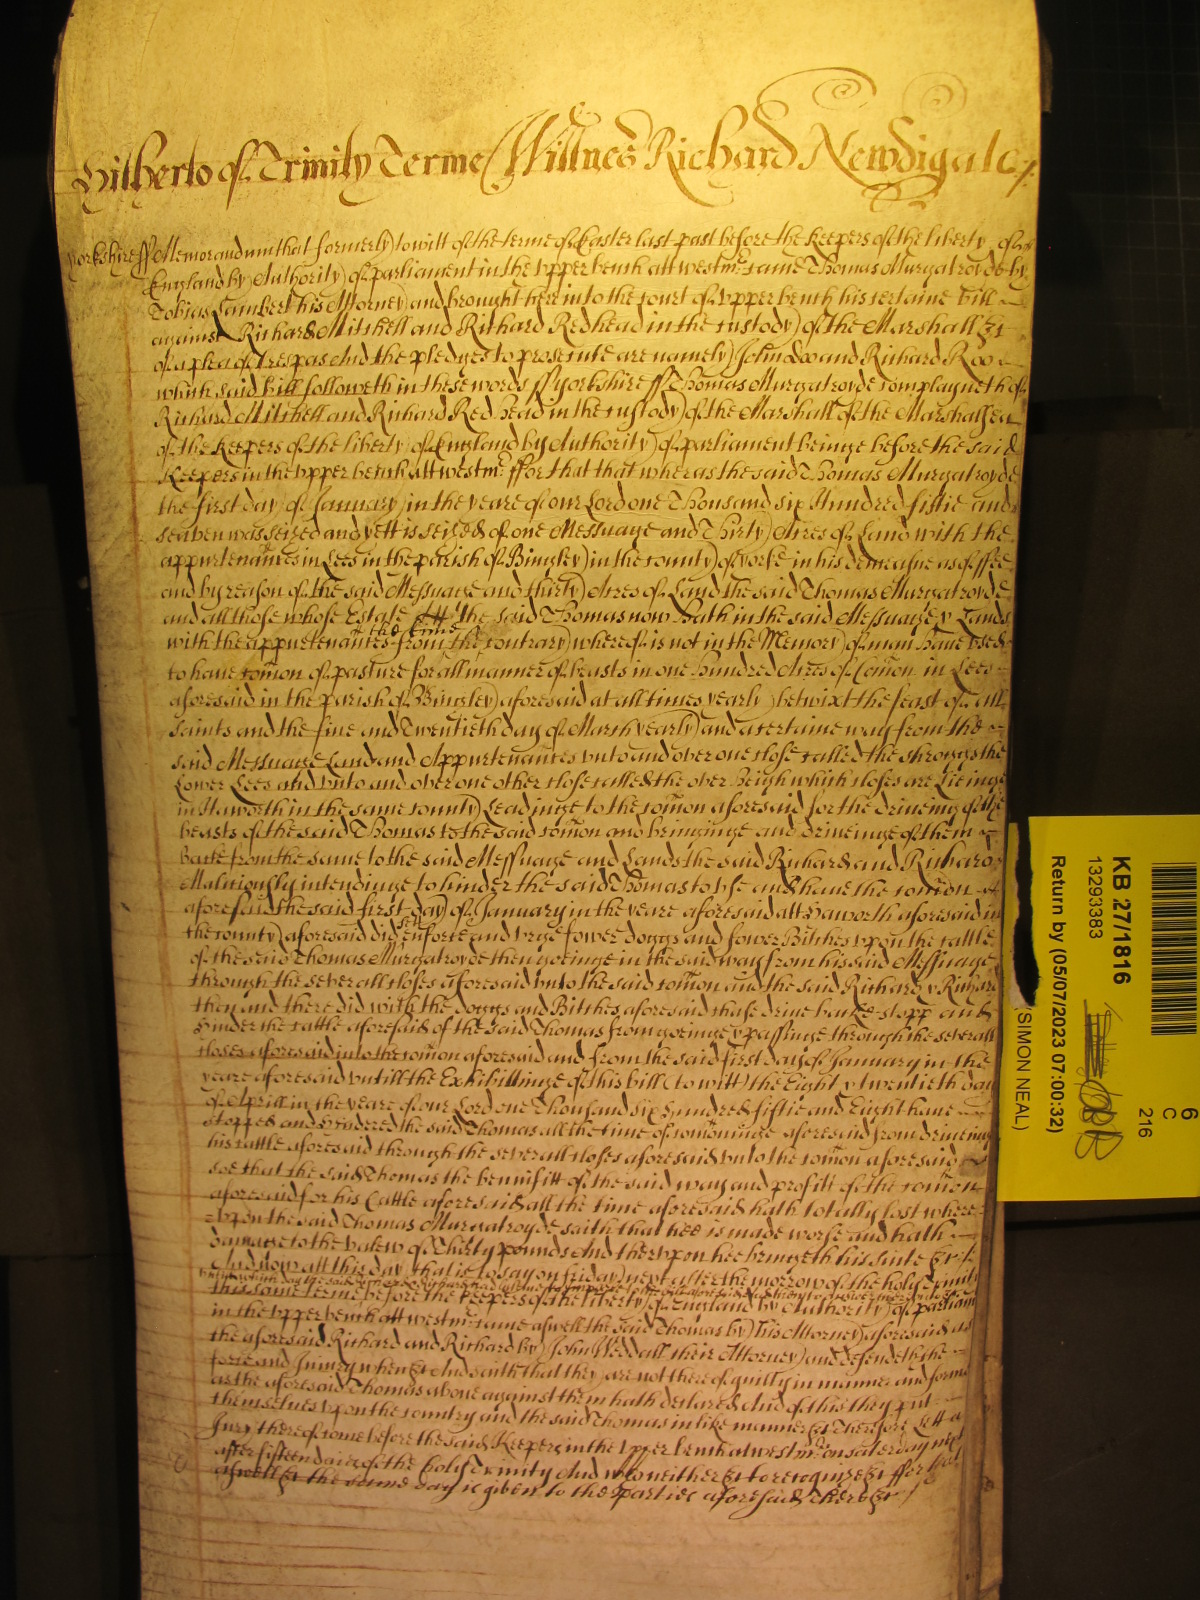 Hitherto of Trinity Terme Wittnes Richard Newdigate
Yorkshire ss Memorandum that formerly to witt of the terme of Easter last past before the keepers of the liberty of
England by Authority of parliament in the upper bench att westmr came Thomas Murgatroyde by
Tobias Lambert his Attorney and brought here into the court of upper bench his certaine bill
against Richard Mitchell and Richard Redhead in the custody of the Marshall &c
of a plea of trespas And the pledges to prosecute are namely John Doo and Richard Roo
which said bill followeth in these words ss yorkshire ss Thomas Murgatroyde complayneth of
Richard Mitchell and Richard Redhead in the custody of the Marshall of the Marshalsea
of the keepers of the liberty of England by Authority of parliament beinge before the said
Keepers in the upper bench att westmr ffor that that whereas the said Thomas Murgatroyde
the first day of January in the yeare of our Lord one Thousand six Hundred fiftie and
seaven was seized and yett is seized of one Messuage and Thirty Acres of Land with the
appurtenances in Lees in the parish of Bingley in the county of yorke in his demeasne as of ffee
and by reason of the said Messuage and thirty Acres of Land the said Thomas Murgatroyde
and all those whose Estate the said Thomas now hath in the said Messuage & Lands
with the appurtenances from the time the contrary whereof is not in the Memory of man have used
to have comon of pasture for all manner of beasts in one hundred Acres of Comon in Lees
aforesaid in the parish of Bingley aforesaid at all times yearly betwixt the feast of all
saints and the five and Twentieth day of March yearly and a certaine way from the
said Messuage Land and Appurtenances unto and over one close called the shroggs the
Lower Lees and unto and over one other close called the over Heigh which closes are Lieinge
in Haworth in the same county Leadinge to the comon aforesaid for the driveing of the
beasts of the said Thomas to the said comon and bringinge and driveinge of them
backe from the same to the said Messuage and Lands the said Richard and Richard
Malitiously intendinge to hinder the said Thomas to use and have the comon
aforesaid the said first day of January in the yeare aforesaid att Haworth aforesaid in
the county aforesaid did sett enforce and urge fower doggs and fower Bitches upon the cattle
of the said Thomas Murgatroyde then goeinge in the said way from his said Messuage
through the severall closes aforesaid unto the said comon and the said Richard & Richard
then and there did with the doggs and Bitches aforesaid chase drive backe stopp and
hinder the cattle aforesaid of the said Thomas from goeinge & passinge through the severall
closes aforesaid into the comon aforesaid and from the said first day of January in the
yeare aforesaid untill the Exhibittinge of this bill (to witt) the Eight & twentieth day
of Aprill in the yeare of our Lord one Thousand six hundred fiftie and Eight have
stopped and hindered the said Thomas all the time of comoninge aforesaid from driveing
his cattle aforesaid through the severall closes aforesaid unto the comon aforesaid
soe that the said Thomas the benifitt of the said way and profitt of the comon
aforesaid for his Cattle aforesaid all the time aforesaid hath totally lost where
upon the said Thomas Murgatroyde saith that hee is made worse and hath
damage to the valew of Thirty pounds And thereupon hee bringeth his suite &c
And now att this day that is to say on friday next after the morrow of the holy Trinity
this same terme before the keepers of the liberty of England by Authority of parliam
in the upper bench att westmr came aswell the said Thomas by his Attorney aforesaid as
the aforesaid Richard and Richard by John Weddall their Attorney and defendeth the
force and Injury when &c And saith that they are not thereof guilty in manner and forme
as the aforesaid Thomas above against them hath declared And of this they put
themselves upon the country and the said Thomas in like manner &c Therefore lett a
Jury thereof come before the said Keepers in the upper bench at westmr on saterday next
after fifteen daies of the holy Trinity And who neither &c to recognize &c ffor that
aswell &c the same day is given to the parties aforesaid there &c
KB 27/1816
13293383
Return by (05/07/2023 07:00:32)
(SIMON NEAL)
6
C
216